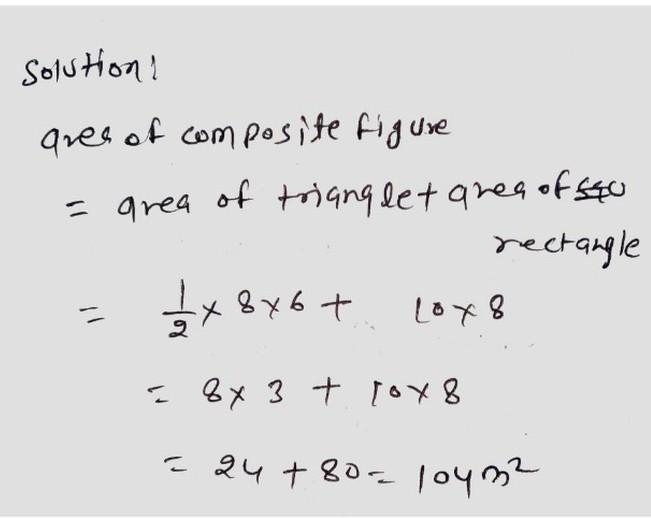 Solution:
area of composite figure
= area of triangle + area of
rectangle
= 1/2 × 8 × 6 + 10 × 8
= 8 × 3 + 10 × 8
= 24 + 80 = 104 m²